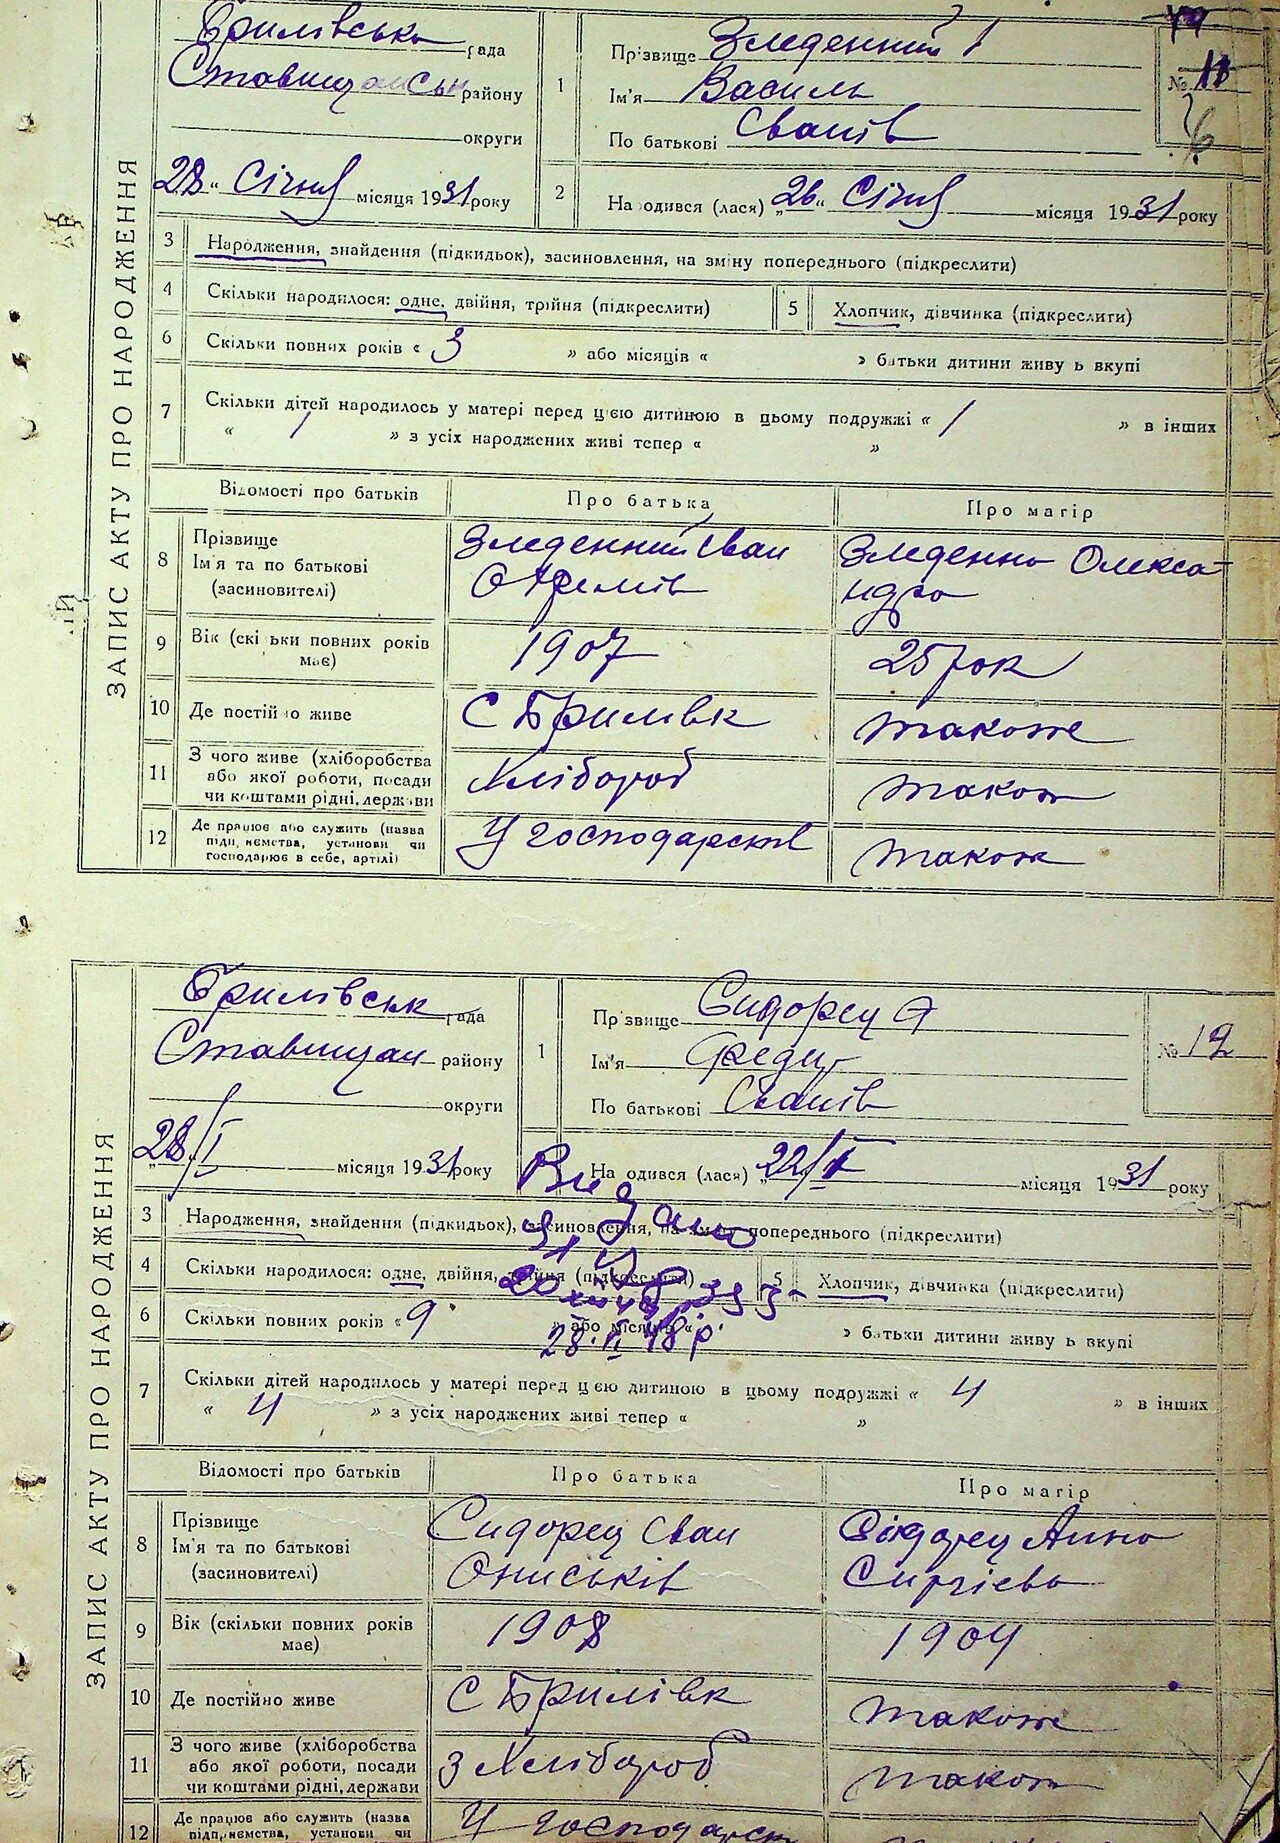 ЗАПИС АКТУ ПРО НАРОДЖЕННЯ
Брилівська рада
Ставищанськ району
округи
28 " Січня місяця 1931 року
1
Прізвище Зледенний
Ім'я Василь
По батькові Іванів
№ 11
2
На одився (лася) „26" Січня місяця 1931 року
3 Народження, знайдення (підкидьок), засиновлення, на зміну попереднього (підкреслити)
4 Скільки народилося: одне, двійня, трійня (підкреслити)
5 Хлопчик, дівчинка (підкреслити)
6 Скільки повних років « 3 » або місяців « » батьки дитини живу ь вкупі
7 Скільки дітей народилось у матері перед цією дитиною в цьому подружжі « 1 » в інших
« 1 » з усіх народжених живі тепер « »
Відомості про батьків Про батька Про матір
8 Прізвище Ім'я та по батькові (засиновителі)
Зледенний Іван
Зледенна Олекса-
ндра
9 Вік (скі ьки повних років має) 1907 25 рок
10 Де постій о живе С Брилівк також
11 З чого живе (хліборобства або якої роботи, посади чи коштами рідні, держави Хлібороб також
12 Де працює або служить (назва підприємства, установи чи господарює в себе, артілі) У господарстві також
ЗАПИС АКТУ ПРО НАРОДЖЕННЯ
Брилівськ рада
Ставищан району
округи
„28/I місяця 1931 року
1
Прізвище Сидорец
Ім'я Федір
По батькові Іванів
№ 12
На одився (лася) „22/I місяця 1931 року
Видано
28.II 48 р.
3 Народження, знайдення (підкидьок), засиновлення, на зміну попереднього (підкреслити)
4 Скільки народилося: одне, двійня, трійня (підкреслити)
5 Хлопчик, дівчинка (підкреслити)
6 Скільки повних років « 9 » або місяців « » батьки дитини живу ь вкупі
7 Скільки дітей народилось у матері перед цією дитиною в цьому подружжі « 4 » в інших
« 4 » з усіх народжених живі тепер « »
Відомості про батьків Про батька Про матір
8 Прізвище Ім'я та по батькові (засиновителі)
Сидорец Іван
Ониськів
Сидорец Анна
Сиргієва
9 Вік (скільки повних років має) 1908 1904
10 Де постійно живе С Брилівк також
11 З чого живе (хліборобства або якої роботи, посади чи коштами рідні, держави З Хлібороб також
12 Де працює або служить (назва підприємства, установи чи У господарст